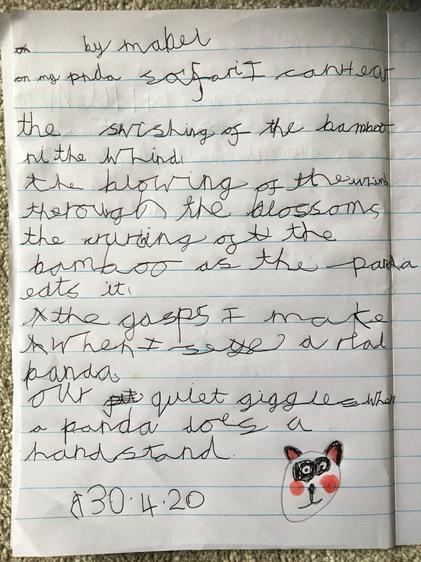 by mabel
on my pnda safari I canHear
the swishing of the bamboo
ni the Whind.
the blowing of the wind
therough the blossoms
the of the
bamboo as the panda
eats it.
the gasps I make
When I a real
panda
our quiet giggles when
a panda does a
handstand.
30.4.20